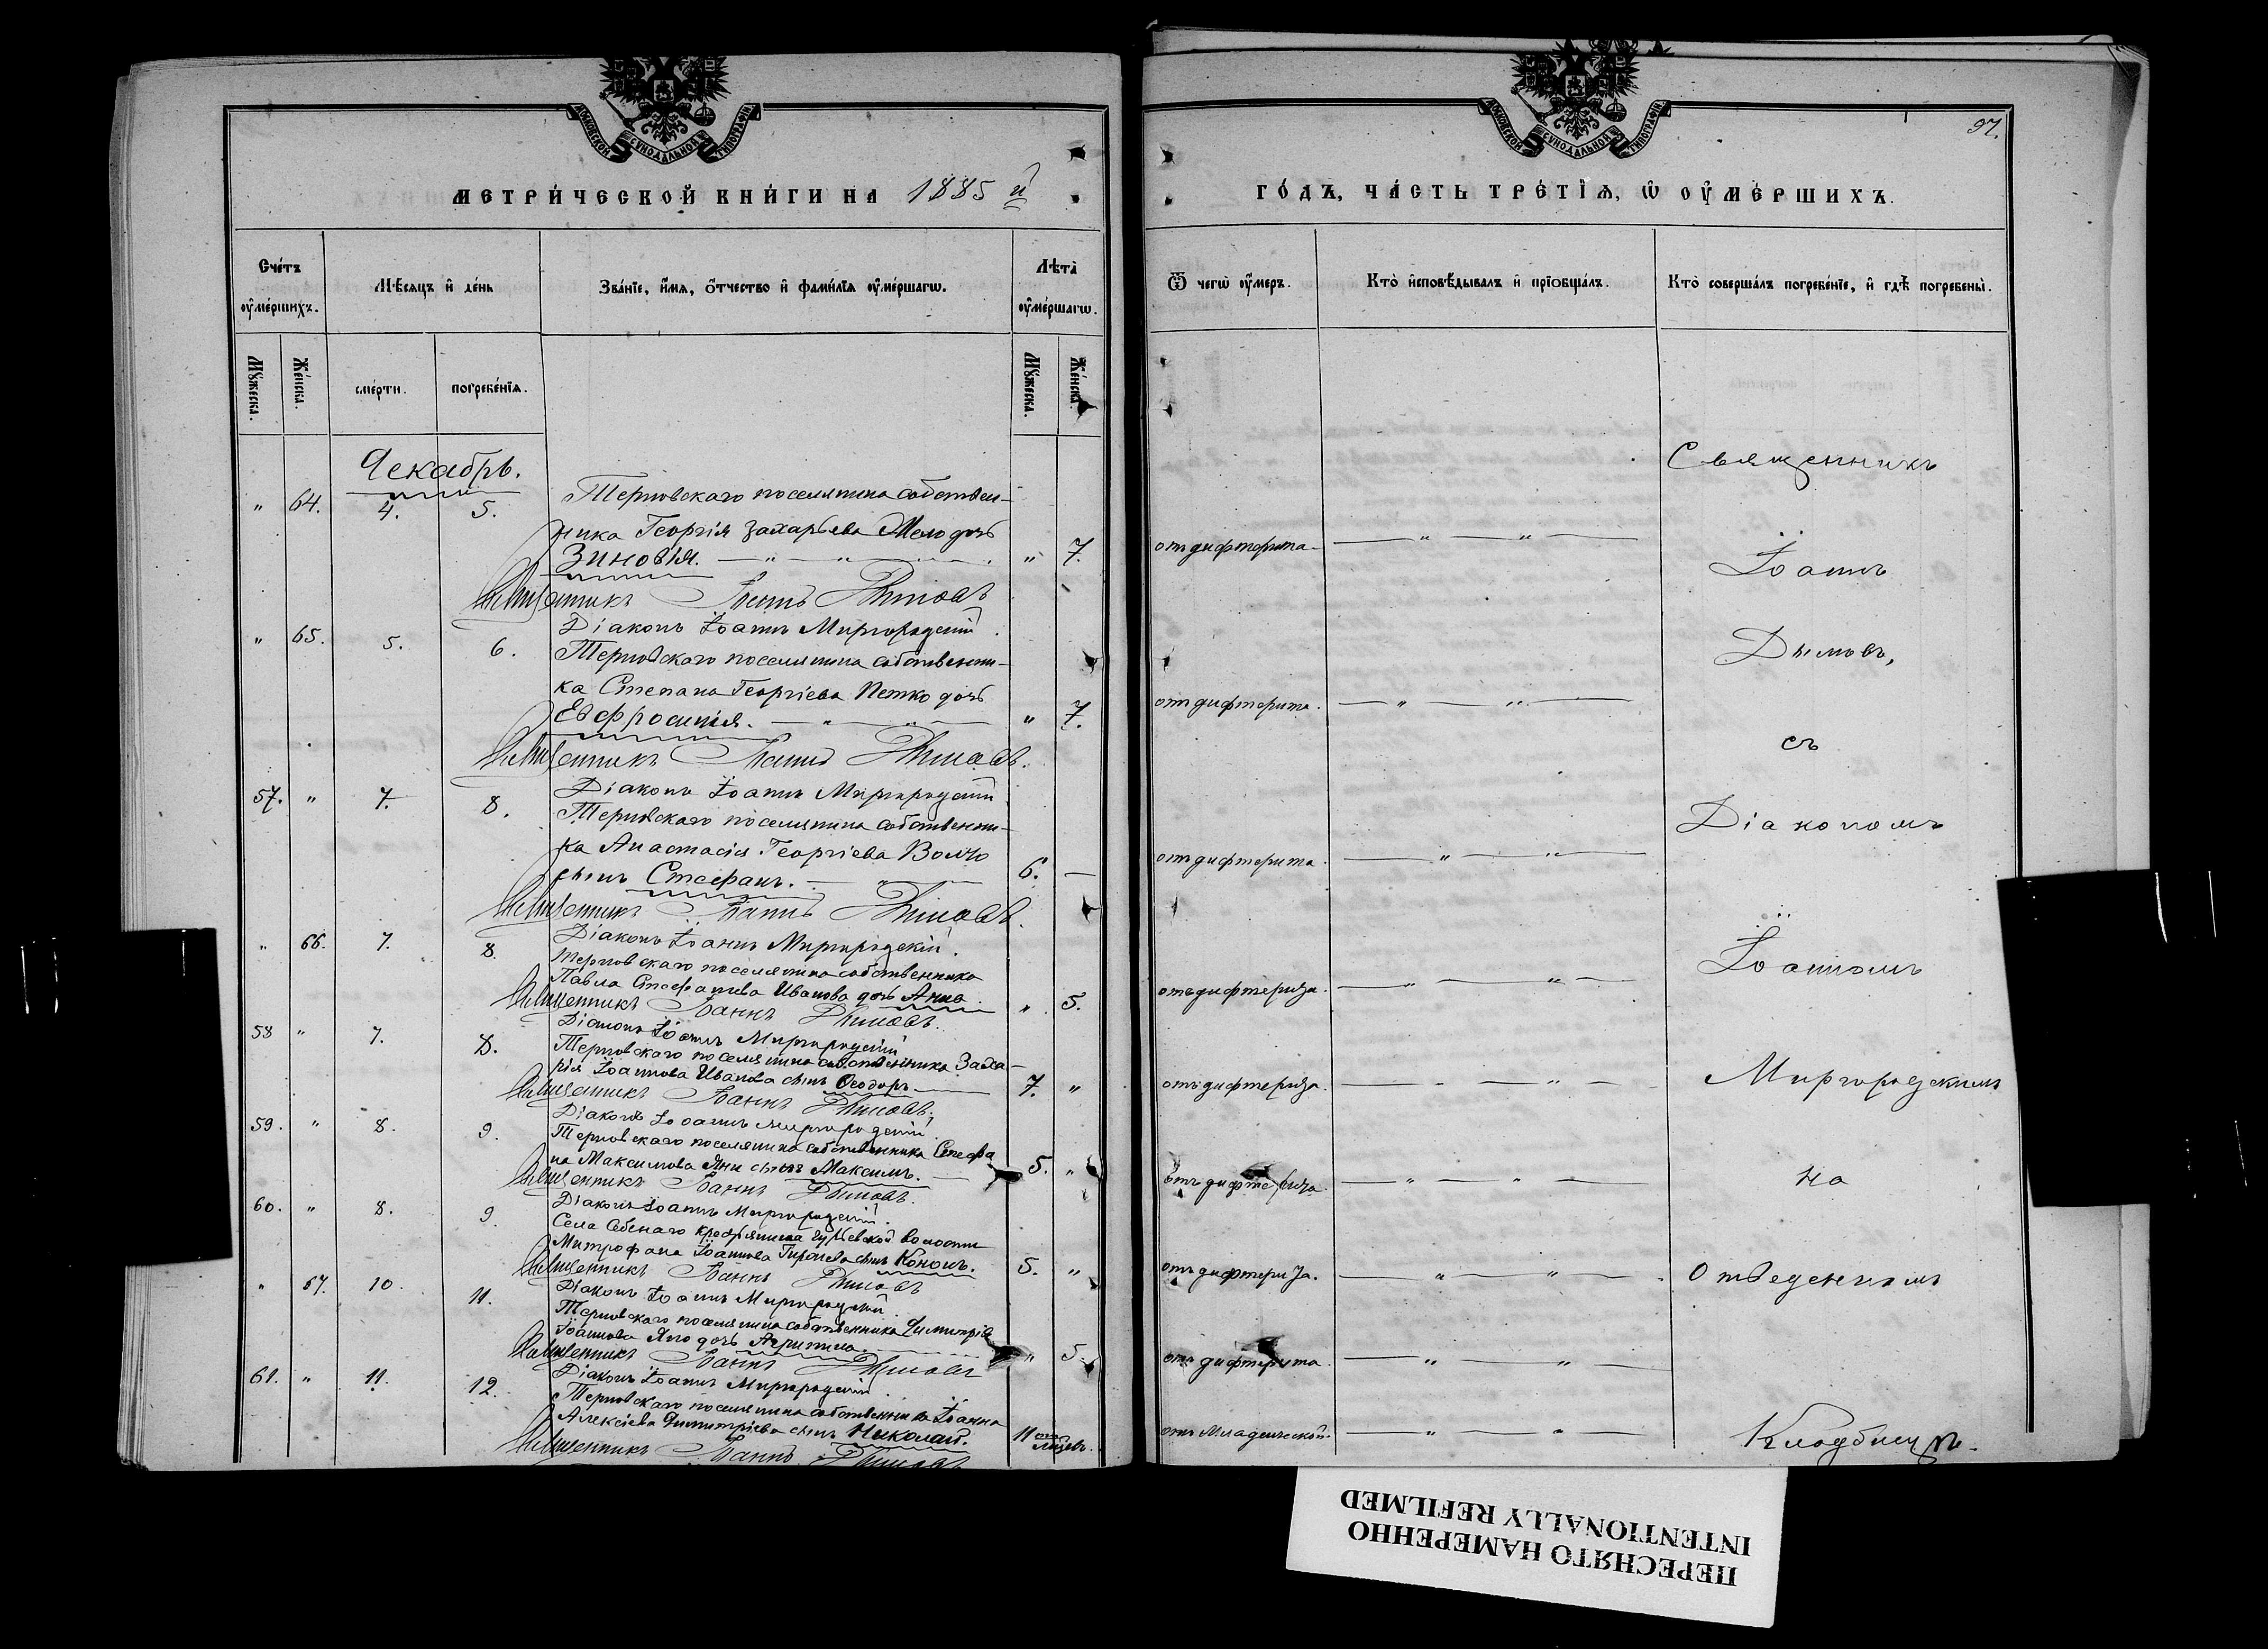 МОСКОВСКОЙ СѴНОДАЛЬНОЙ ТИПОГРАФІИ
МЕТРИ́ЧЕСКОЙ КНИ́ГИ НА 1885 й
Счетъ оумершихъ.
Мѣсяцъ и день
Званіе, имя, отчество и фамилія оумершагѡ.
Лѣта оумершагѡ.
Мужеска.
Женска.
смерти.
погребенія.
Мужеска.
Женска.
Декабрь.
" 64. 4. 5. Терновскаго поселянина собствен-
ника Георгія Захарьева Мело дочь
Зиновія. — " — " — . " 7.
Священникъ Іоаннъ Дымовъ
Діаконъ Іоаннъ Миргородскій.
" 65. 5. 6. Терновскаго поселянина собственни-
ка Степана Георгіева Петко дочь
Евфросинія. — " — " — " 7.
Священникъ Іоаннъ Дымовъ.
Діаконъ Іоаннъ Миргородскій
57. " 7. 8. Терновскаго поселянина собственни-
ка Анастасія Георгіева Волчо
сынъ Стефанъ. — " — 6. —
Священникъ Іоаннъ Дымовъ.
Діаконъ Іоаннъ Миргородскій.
" 66. 7. 8. Терновскаго поселянина собственника
Павла Стефанова Иванова дочь Анна. " 5.
Священникъ Іоаннъ Дымовъ.
Діаконъ Іоаннъ Миргородскій
58 " 7. 8. Терновскаго поселянина собственника Заха-
рія Іоаннова Иванова сынъ Ѳеодоръ — 7. "
Священникъ Іоаннъ Дымовъ.
Діаконъ Іоаннъ Миргородскій
59. " 8. 9. Терновскаго поселянина собственника Стефа
на Максимова Яни сынъ Максимъ. — 5. "
Священникъ Іоаннъ Дымовъ.
Діаконъ Іоаннъ Миргородскій.
60. " 8. 9. Села крестьянина волости
Митрофана Іоаннова сынъ Кононъ. 5. "
Священникъ Іоаннъ Дымовъ
Діаконъ Іоаннъ Миргородскій.
" 67. 10. 11. Терновскаго поселянина собственника Димитрія
Іоаннова дочь Агрипина. " 5.
Священникъ Іоаннъ Дымовъ
Діаконъ Іоаннъ Миргородскій.
61. " 11. 12. Терновскаго поселянина собственника Іоанна
Алексіева Димитріева сынъ Николай. 11
Священникъ Іоаннъ Дымовъ
МОСКОВСКОЙ СѴНОДАЛЬНОЙ ТИПОГРАФІИ
97.
ГО́ДЪ, ЧА́СТЬ ТРЕ́ТІЯ, Ѡ ОУМЕ́РШИХЪ.
Ѿ чегѡ оумеръ.
Кто исповѣдывалъ и пріобщалъ.
Кто совершалъ погребеніе, и гдѣ погребены.
Священникъ
отъ дифтерита — " — " —
Іоаннъ
Дымовъ,
отъ дифтерита. — " — " —
съ
Діакономъ
отъ дифтерита. — " — " —
Іоанномъ
отъ дифтерита. — " — " —
Миргородскимъ
отъ дифтерита. — " — " —
на
отъ дифтерита. — " — " —
отъ дифтерита. — " — " —
отведенномъ
отъ дифтерита. — " — " —
отъ младенческой. — " — " —
Кладбищѣ.
ПЕРЕСНЯТО НАМЕРЕННО
INTENTIONALLY REFILMED